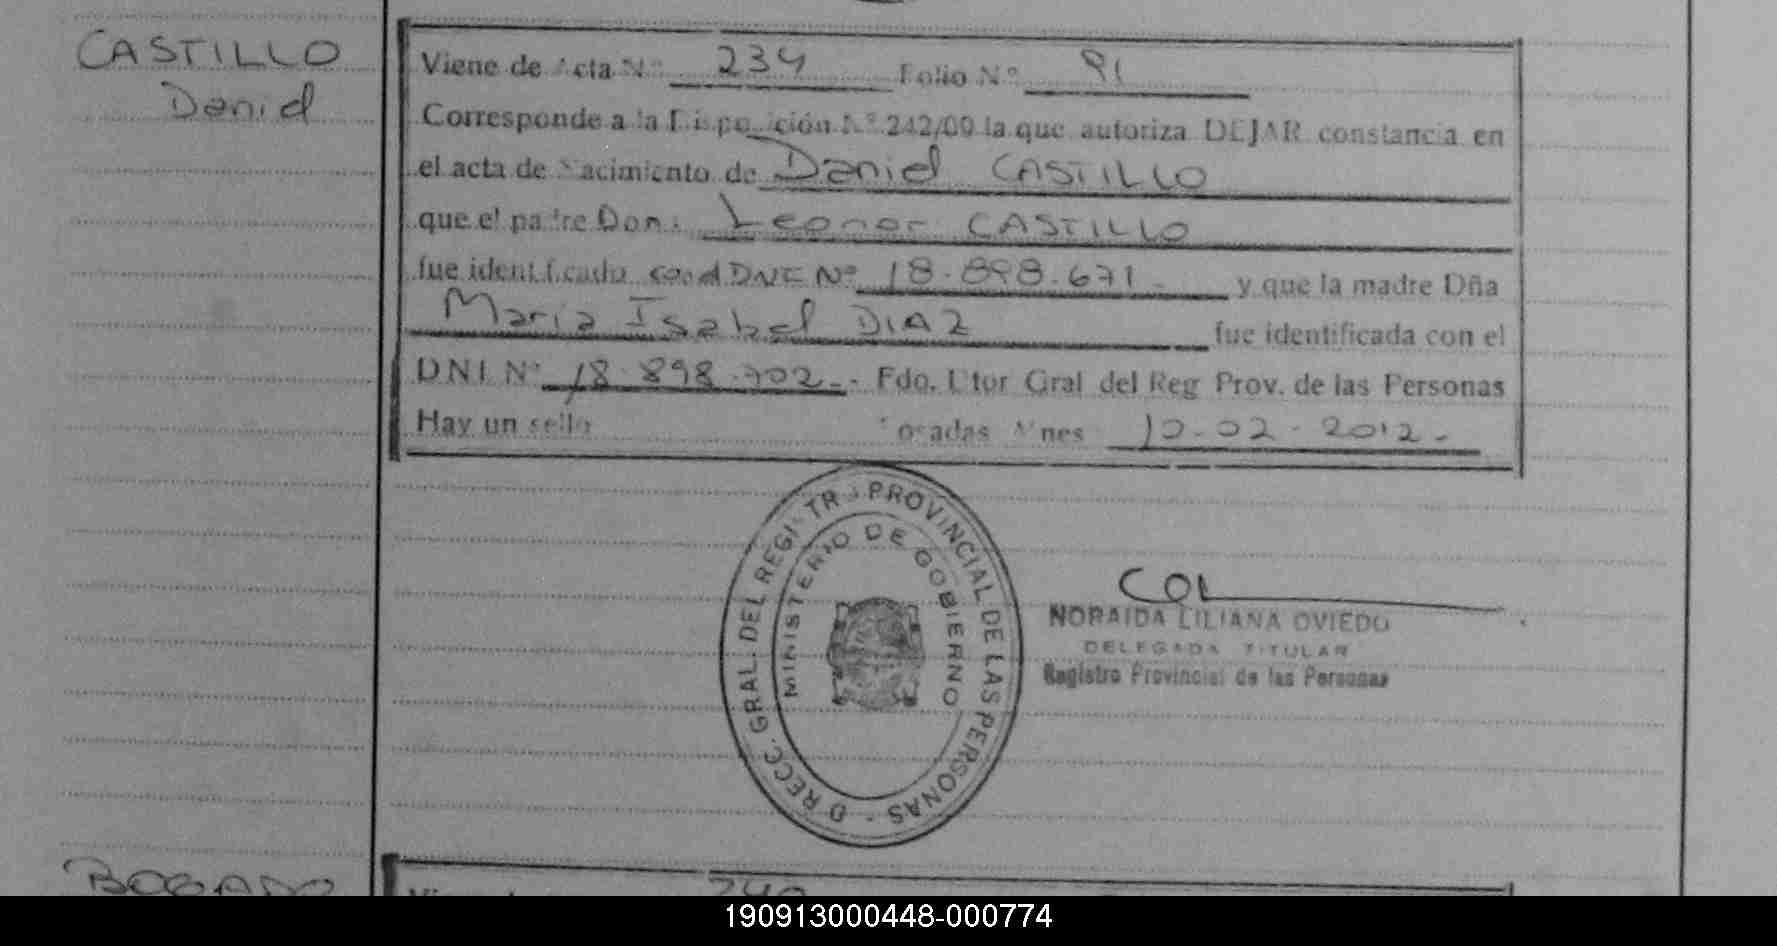 CASTILLO
Daniel
Viene de Acta Nº 234 Folio Nº 91
Corresponde a la Disposición Nº 242/00 la que autoriza DEJAR constancia en
el acta de Nacimiento de Daniel CASTILLO
que el padre Don: Leonor CASTILLO
fue identificado con el DNI Nº 18.898.671.- y que la madre Dña
Maria Isabel DIAZ fue identificada con el
DNI Nº 18.898.702.-. Fdo. Dtor Gral del Reg Prov. de las Personas
Hay un sello Posadas Mnes 10-02-2012.-
DIRECC. GRAL. DEL REGISTRO PROVINCIAL DE LAS PERSONAS -
MINISTERIO DE GOBIERNO
NORAIDA LILIANA OVIEDO
DELEGADA TITULAR
Registro Provincial de las Personas
BOGADO
240
190913000448-000774